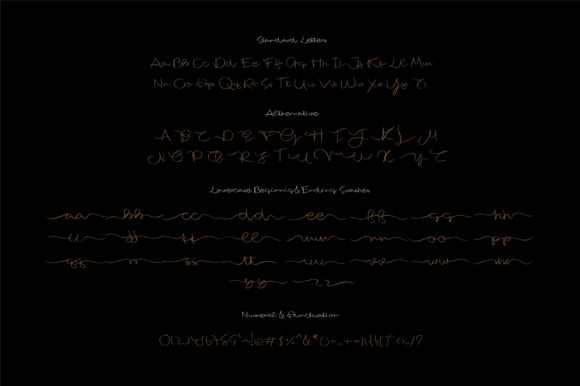 Standard Letters
Aa Bb Cc Dd Ee Ff Gg Hh Ii Jj Kk Ll Mm
Nn Oo Pp Qq Rr Ss Tt Uu Vv Ww Xx Yy Zz
Altternative
A B C D E F G H I J K L M
N O P D R S T U V W X Y Z
Lowercase Beginnig & Ending Swashes
aa bb cc dd ee ff gg hh
ii jj kk ll mm nn oo pp
qq rr ss tt uu vv ww xx
yy zz
Numeral & Punctuation